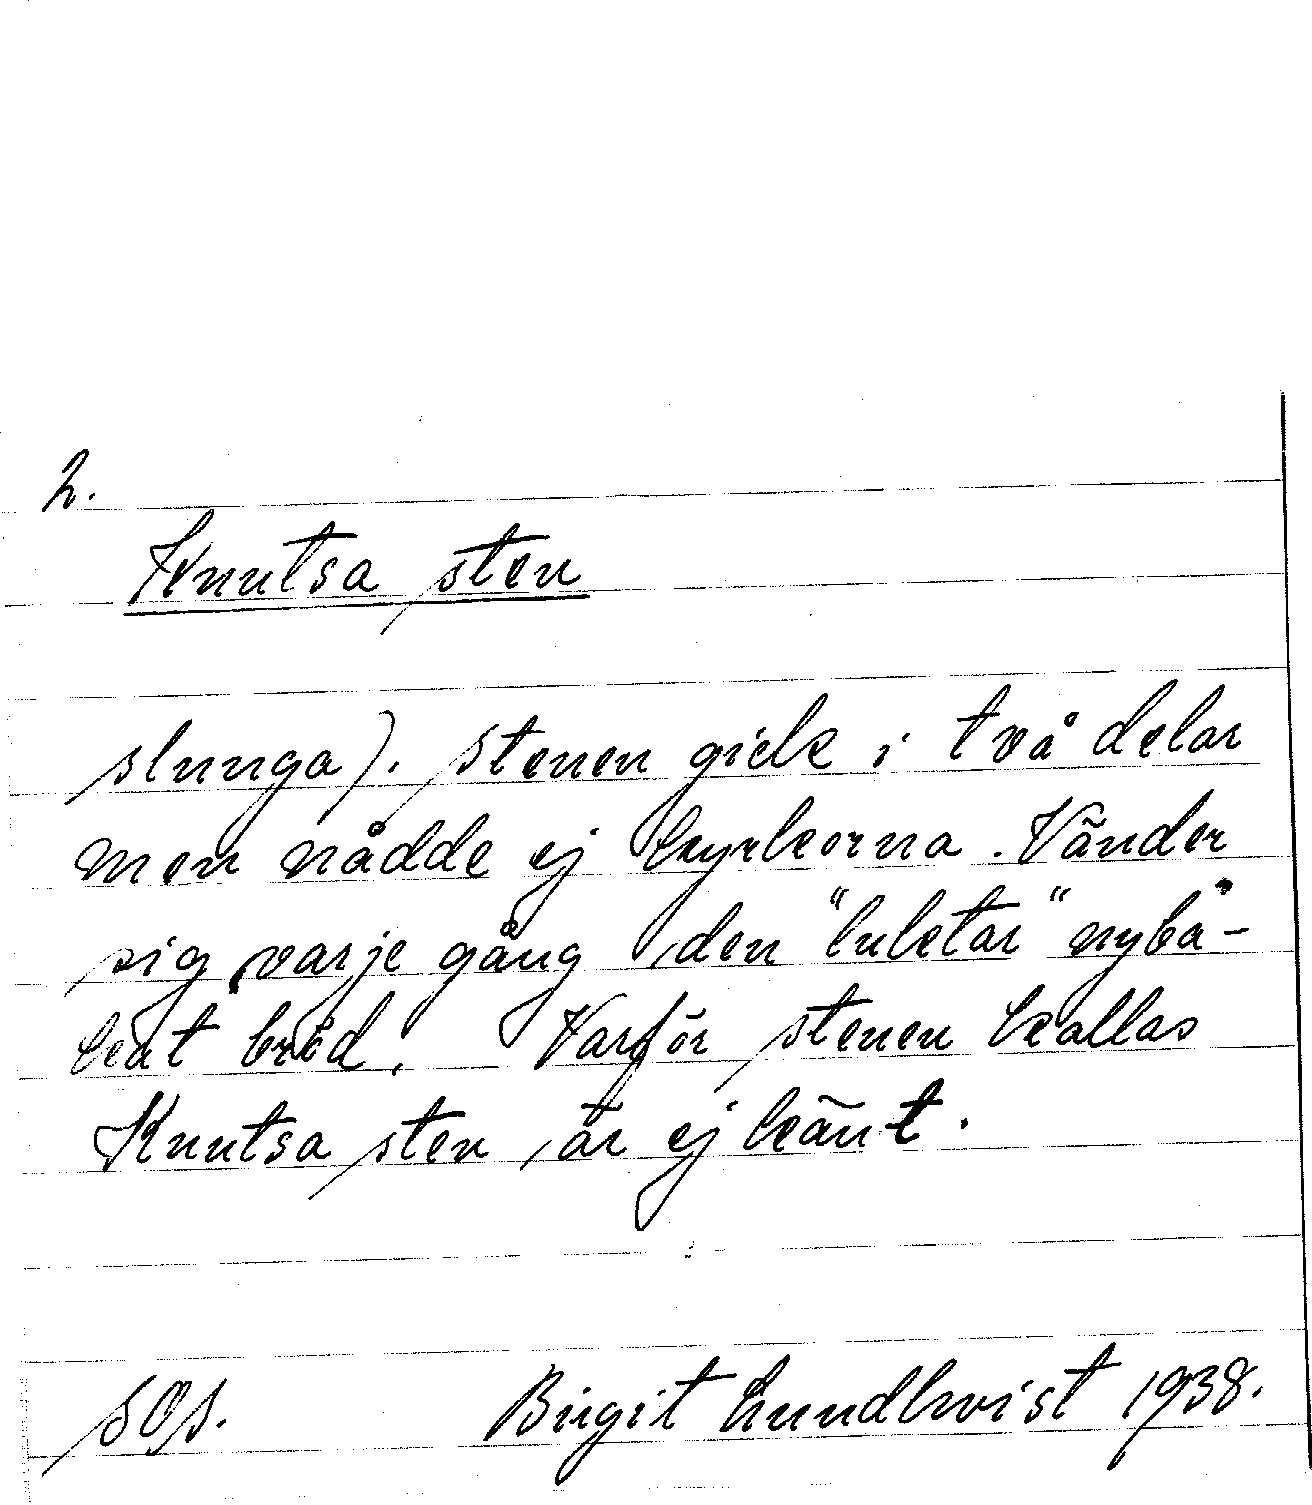 2.
Knutsa sten
slunga). Stenen gick i två delar
men nådde ej kyrkorna. Vänder
sig varje gång den "luktar" nybå-
kat bröd. Varför stenen kallas
Knutsa sten är ej känt.
Birgit Lundkvist 1938.